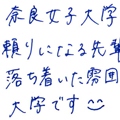 奈良女子大学
頼りになる先輩
落ち着いた雰囲
大学です